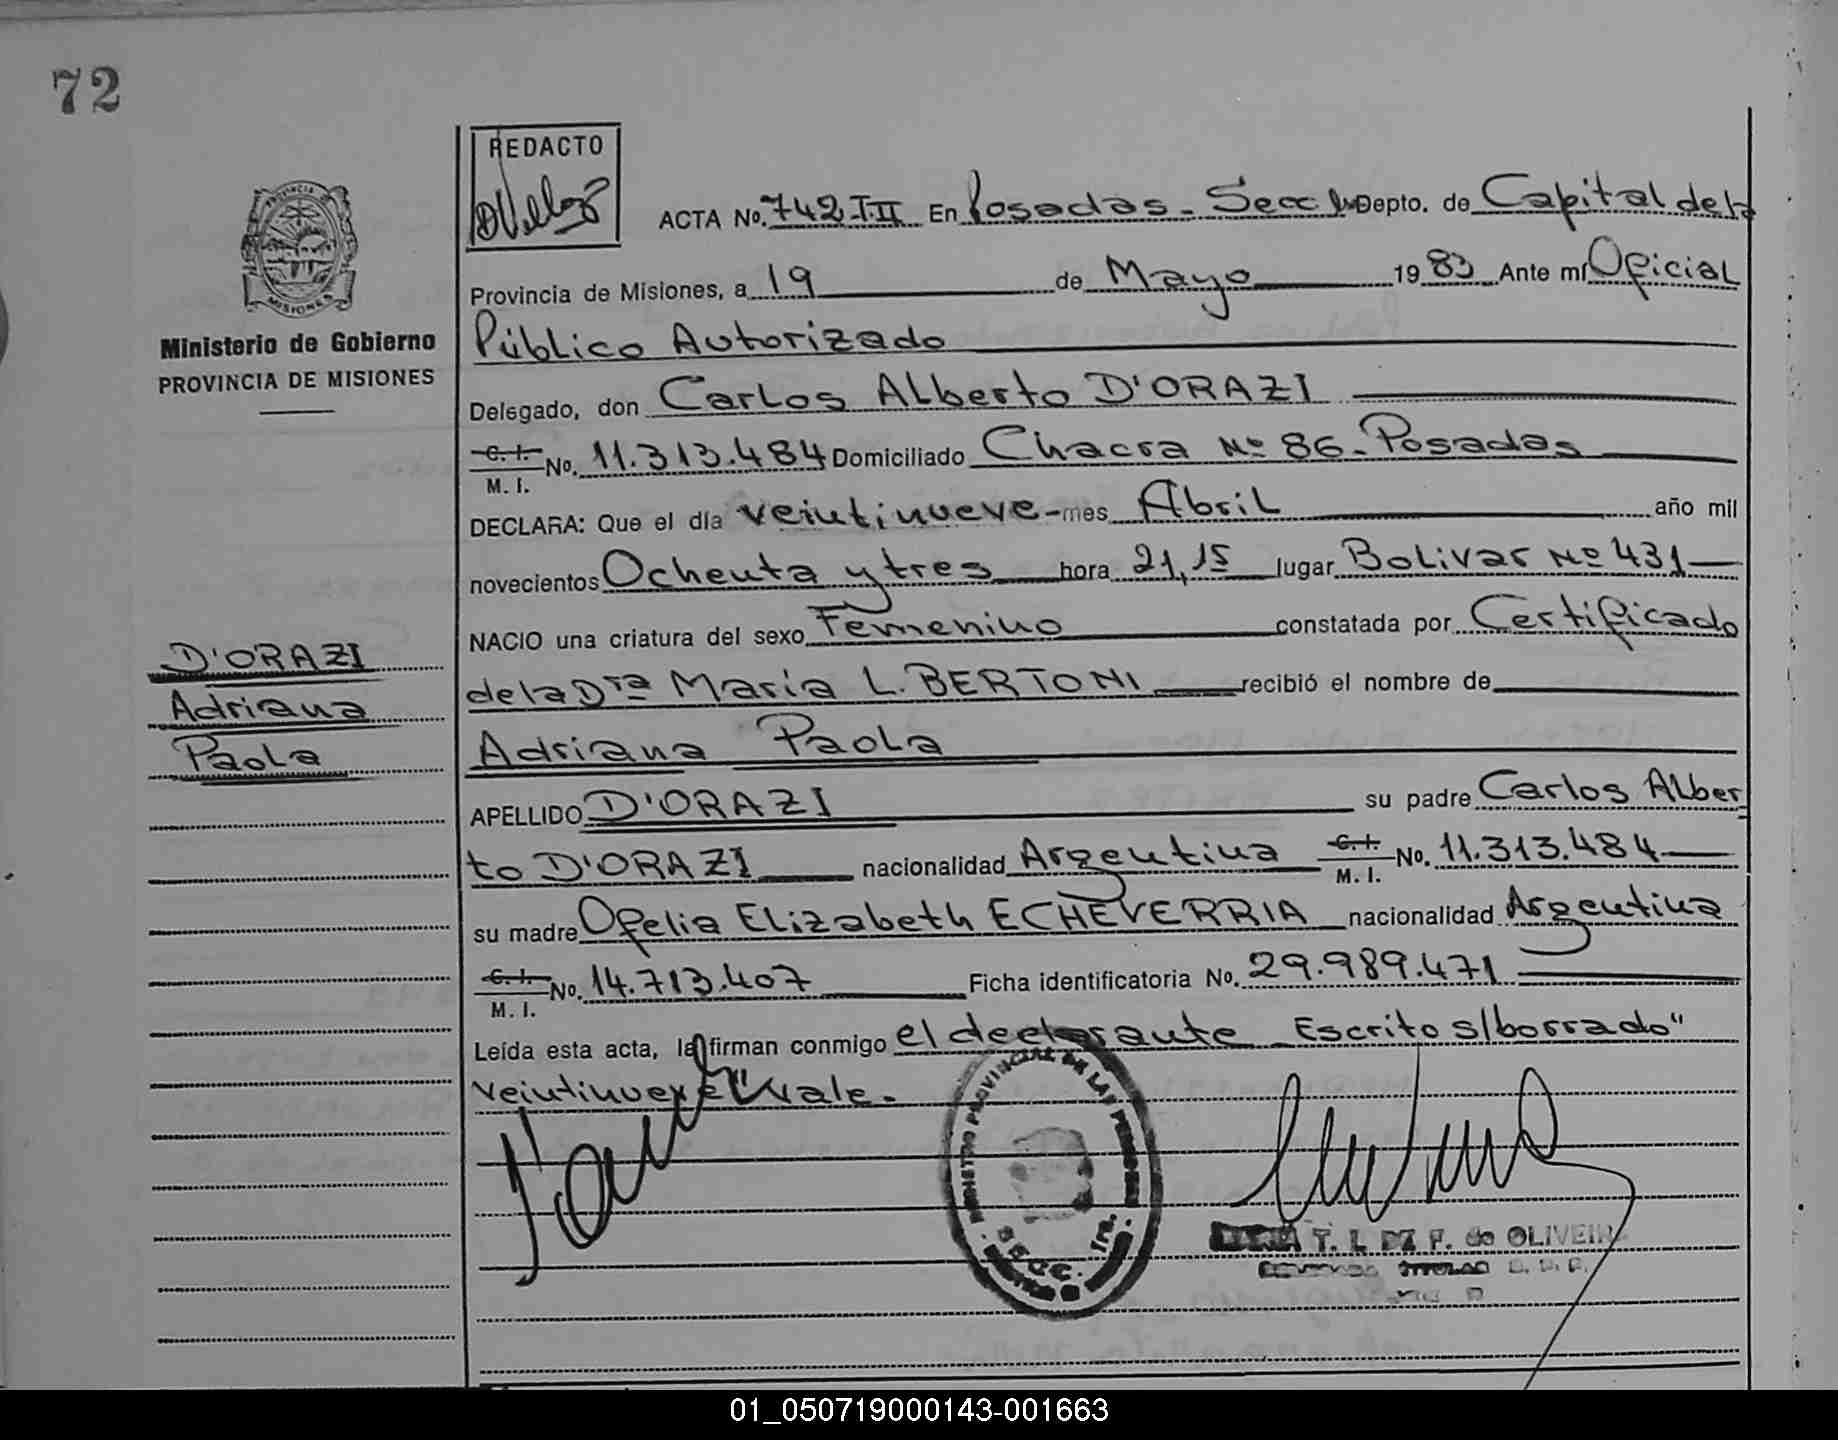 72
REDACTO
ACTA No. 742 T.II En Posadas - Secc 1ra Depto. de Capital de la
Provincia de Misiones, a 19 de Mayo 1983 Ante mí Oficial
Público Autorizado
Delegado, don Carlos Alberto D'ORAZI
C. I.
M. I. No. 11.313.484 Domiciliado Chacra Nº 86 - Posadas
DECLARA: Que el día veintinueve - mes Abril año mil
novecientos Ochenta y tres hora 21,15 lugar Bolivar Nº 431
NACIO una criatura del sexo Femenino constatada por Certificado
de la Dra Maria L. BERTONI recibió el nombre de
Adriana Paola
APELLIDO D'ORAZI su padre Carlos Alber
to D'ORAZI nacionalidad Argentina C. I.
M. I. No. 11.313.484
su madre Ofelia Elizabeth ECHEVERRIA nacionalidad Argentina
C. I.
M. I. No. 14.713.407 Ficha identificatoria No. 29.989.471
Leída esta acta, la firman conmigo el declarante Escrito s/borrado"
veintinueve" vale.
PROVINCIA
MISIONES
Ministerio de Gobierno
PROVINCIA DE MISIONES
D'ORAZI
Adriana
Paola
PROVINCIAL DE LAS PERSONAS
T. L. DZ F. de OLIVEIR
01_050719000143-001663